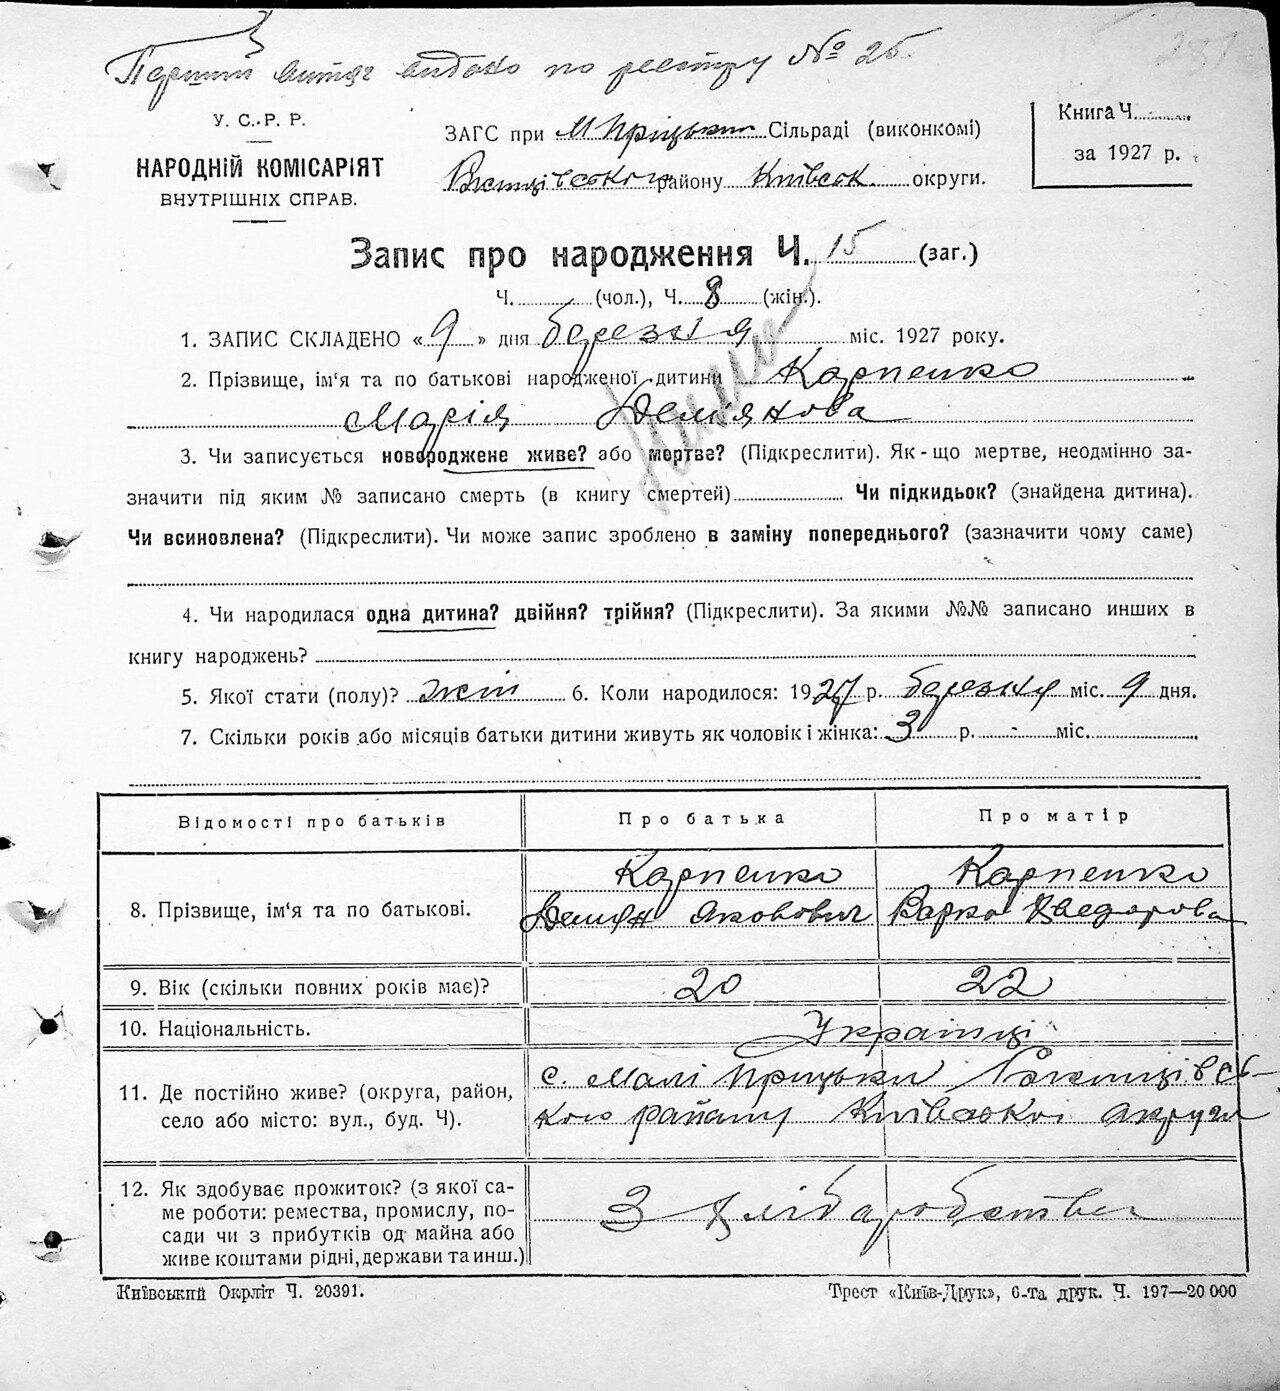 Перший витяг видано по реєстру № 25.
У. С. Р. Р.
НАРОДНІЙ КОМІСАРІЯТ
ВНУТРІШНІХ СПРАВ.
ЗАГС при М Пріцьким Сільраді (виконкомі)
району Київсок. округи.
Книга Ч.
за 1927 р.
Запис про народження Ч. 15 (заг.)
Ч. (чол.), Ч. 8 (жін.).
1. ЗАПИС СКЛАДЕНО «9» дня березня міс. 1927 року.
2. Прізвище, ім‘я та по батькові народженої дитини Карпенко
Марія Демянова
3. Чи записується новороджене живе? або мертве? (Підкреслити). Як-що мертве, неодмінно за-
значити під яким № записано смерть (в книгу смертей) Чи підкидьок? (знайдена дитина).
Чи всиновлена? (Підкреслити). Чи може запис зроблено в заміну попереднього? (зазначити чому саме)
4. Чи народилася одна дитина? двійня? трійня? (Підкреслити). За якими №№ записано инших в
книгу народжень?
5. Якої стати (полу)? жін 6. Коли народилося: 1927 р. березня міс. 9 дня.
7. Скільки років або місяців батьки дитини живуть як чоловік і жінка: 3 р. - міс.
Відомості про батьків Про батька Про матір
Карпенко Карпенко
8. Прізвище, ім‘я та по батькові. Демян Якович Варка Хведорова
9. Вік (скільки повних років має)? 20 22
10. Національність. Українці
11. Де постійно живе? (округа, район, с. Малі Прицьки
село або місто: вул., буд. Ч). кого району Київської округи
12. Як здобуває прожиток? (з якої са-
ме роботи: ремества, промислу, по- З хліборобства
сади чи з прибутків од майна або
живе коштами рідні, держави та инш.)
Київський Окрліт Ч. 20391.
Трест «Київ-Друк», 6-та друк. Ч. 197—20 000